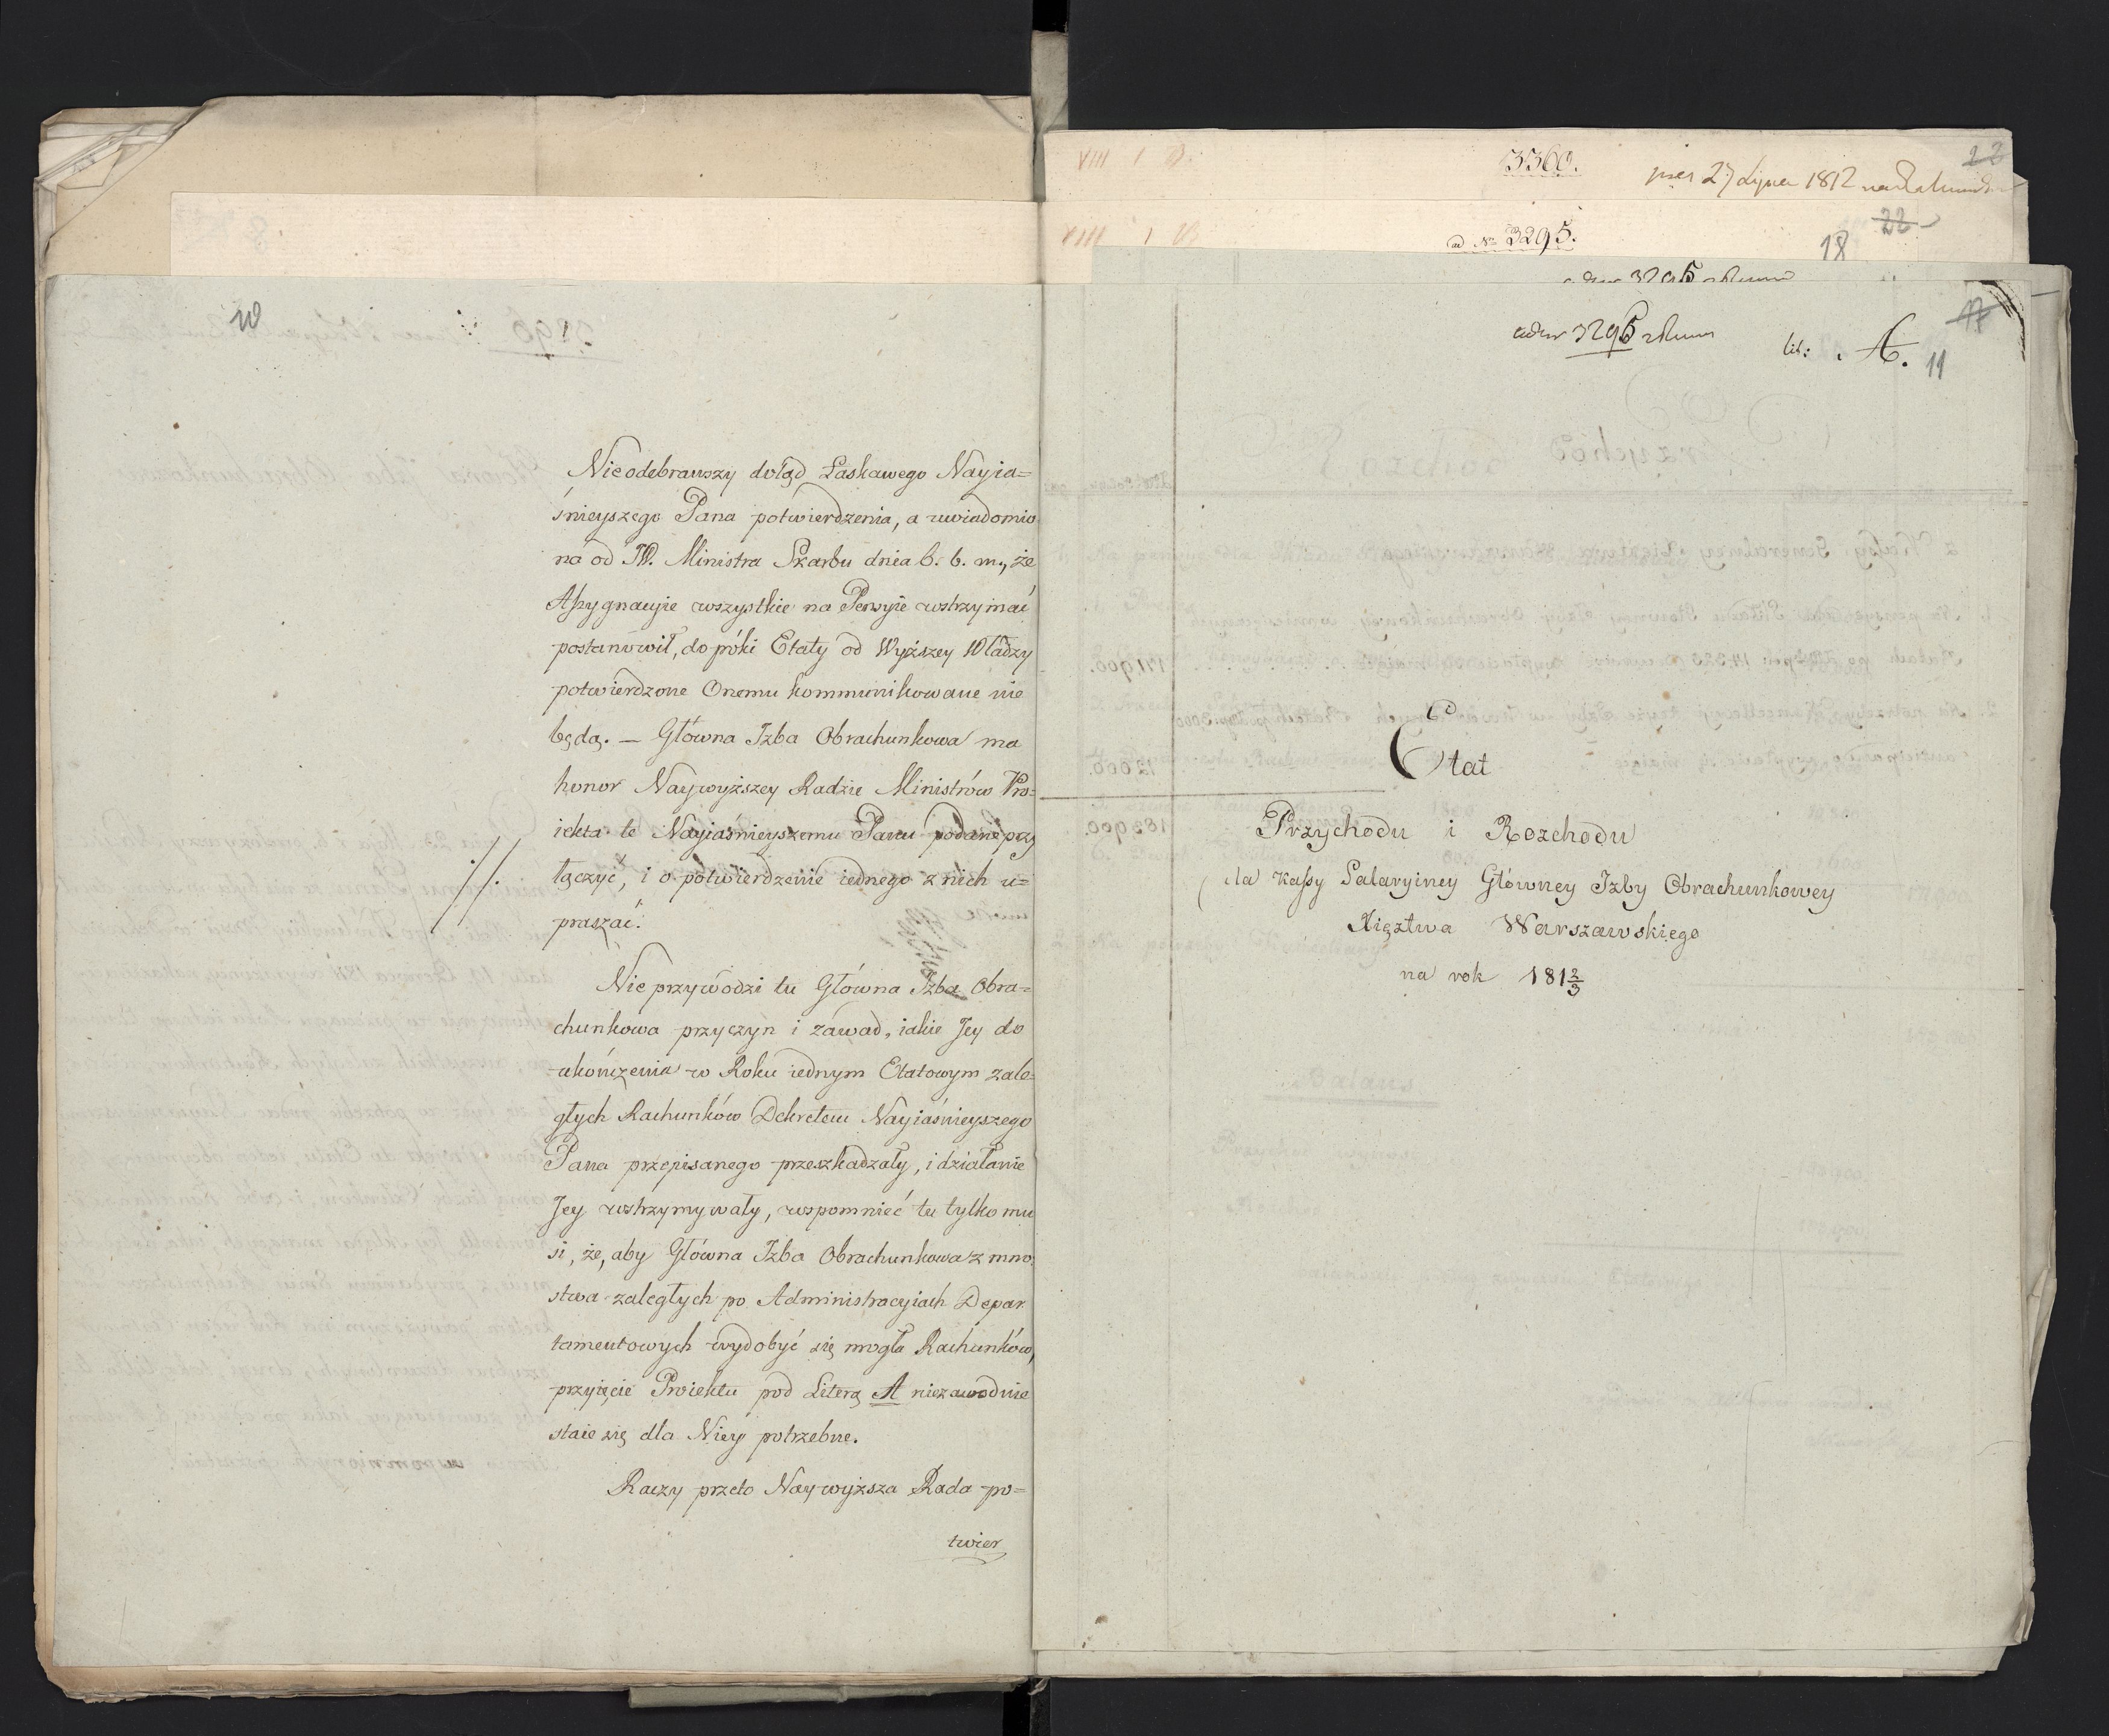 10
Nieodebrawszy dotąd Łaskawego Nayia=
śnieyszego Pana potwierdzenia, a uwiadomio
na od JW. Ministra Skarbu dnia 6. b. m., że
Assygnacyie wszystkie na Pensyie wstrzymać
postanowił, do póki Etaty od Wyższey Władzy
potwierdzone Onemu kommunikowane nie
będą. — Główna Izba Obrachunkowa ma
honor Naywyższey Radzie Ministrów Pro=
iekta te Nayiaśnieyszemu Panu podane przy
łączyć, i o potwierdzenie iednego z nich u=
praszać.
Nie przywodzi tu Główna Izba Obra=
chunkowa przyczyn i zawad, iakie Jey do
ukończenia w Roku iednym Etatowym zale=
głych Rachunków Dekretem Nayiaśnieyszego
Pana przepisanego przeszkadzały, i działanie
Jey wstrzymywały, wspomnieć tu tylko mu
si, że, aby Główna Izba Obrachunkowa z mno
stwa zaległych po Administracyiach Depar
tamentowych wydobyć się mogła Rachunków,
przyięcie Proiektu pod Literą A niezawodnie
staie się dla Niey potrzebne.
Raczy przeto Naywyższa Rada po=
twier
VIII 1 B.
3360.
22
27 Lipca 1812
VIII 1 B
ad Nro 3295.
18
22
3295
3295
lit: A.
17
11
Etat
Przychodu i Rozchodu
dla Kassy Salaryiney Główney Izby Obrachunkowey
Xięztwa Warszawskiego
na rok 181 2/3